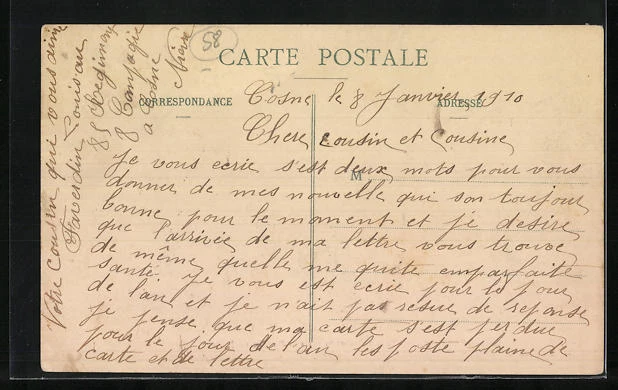 58
CARTE POSTALE
CORRESPONDANCE
ADRESSE
M
Cosne le 8 Janvier 1910
Chere cousin et Cousine
Je vous ecrie s'est deux mots pour vous
donner de mes nouvelle qui son toujour
bonne pour le moment et je desire
que l'arrivée de ma lettre vous trouve
de même quelle me quite emparfaite
santé. Je vous est ecrie pour le jour
de l'an et je n'ait pas resue de reponse
je pense que ma carte s'est perdue
pour le jour de l'an les poste plaine de
carte et de lettre
Votre Cousin que vous aime
Faverdin Louis au
85 Regiment
8 Compagie
a Cosne